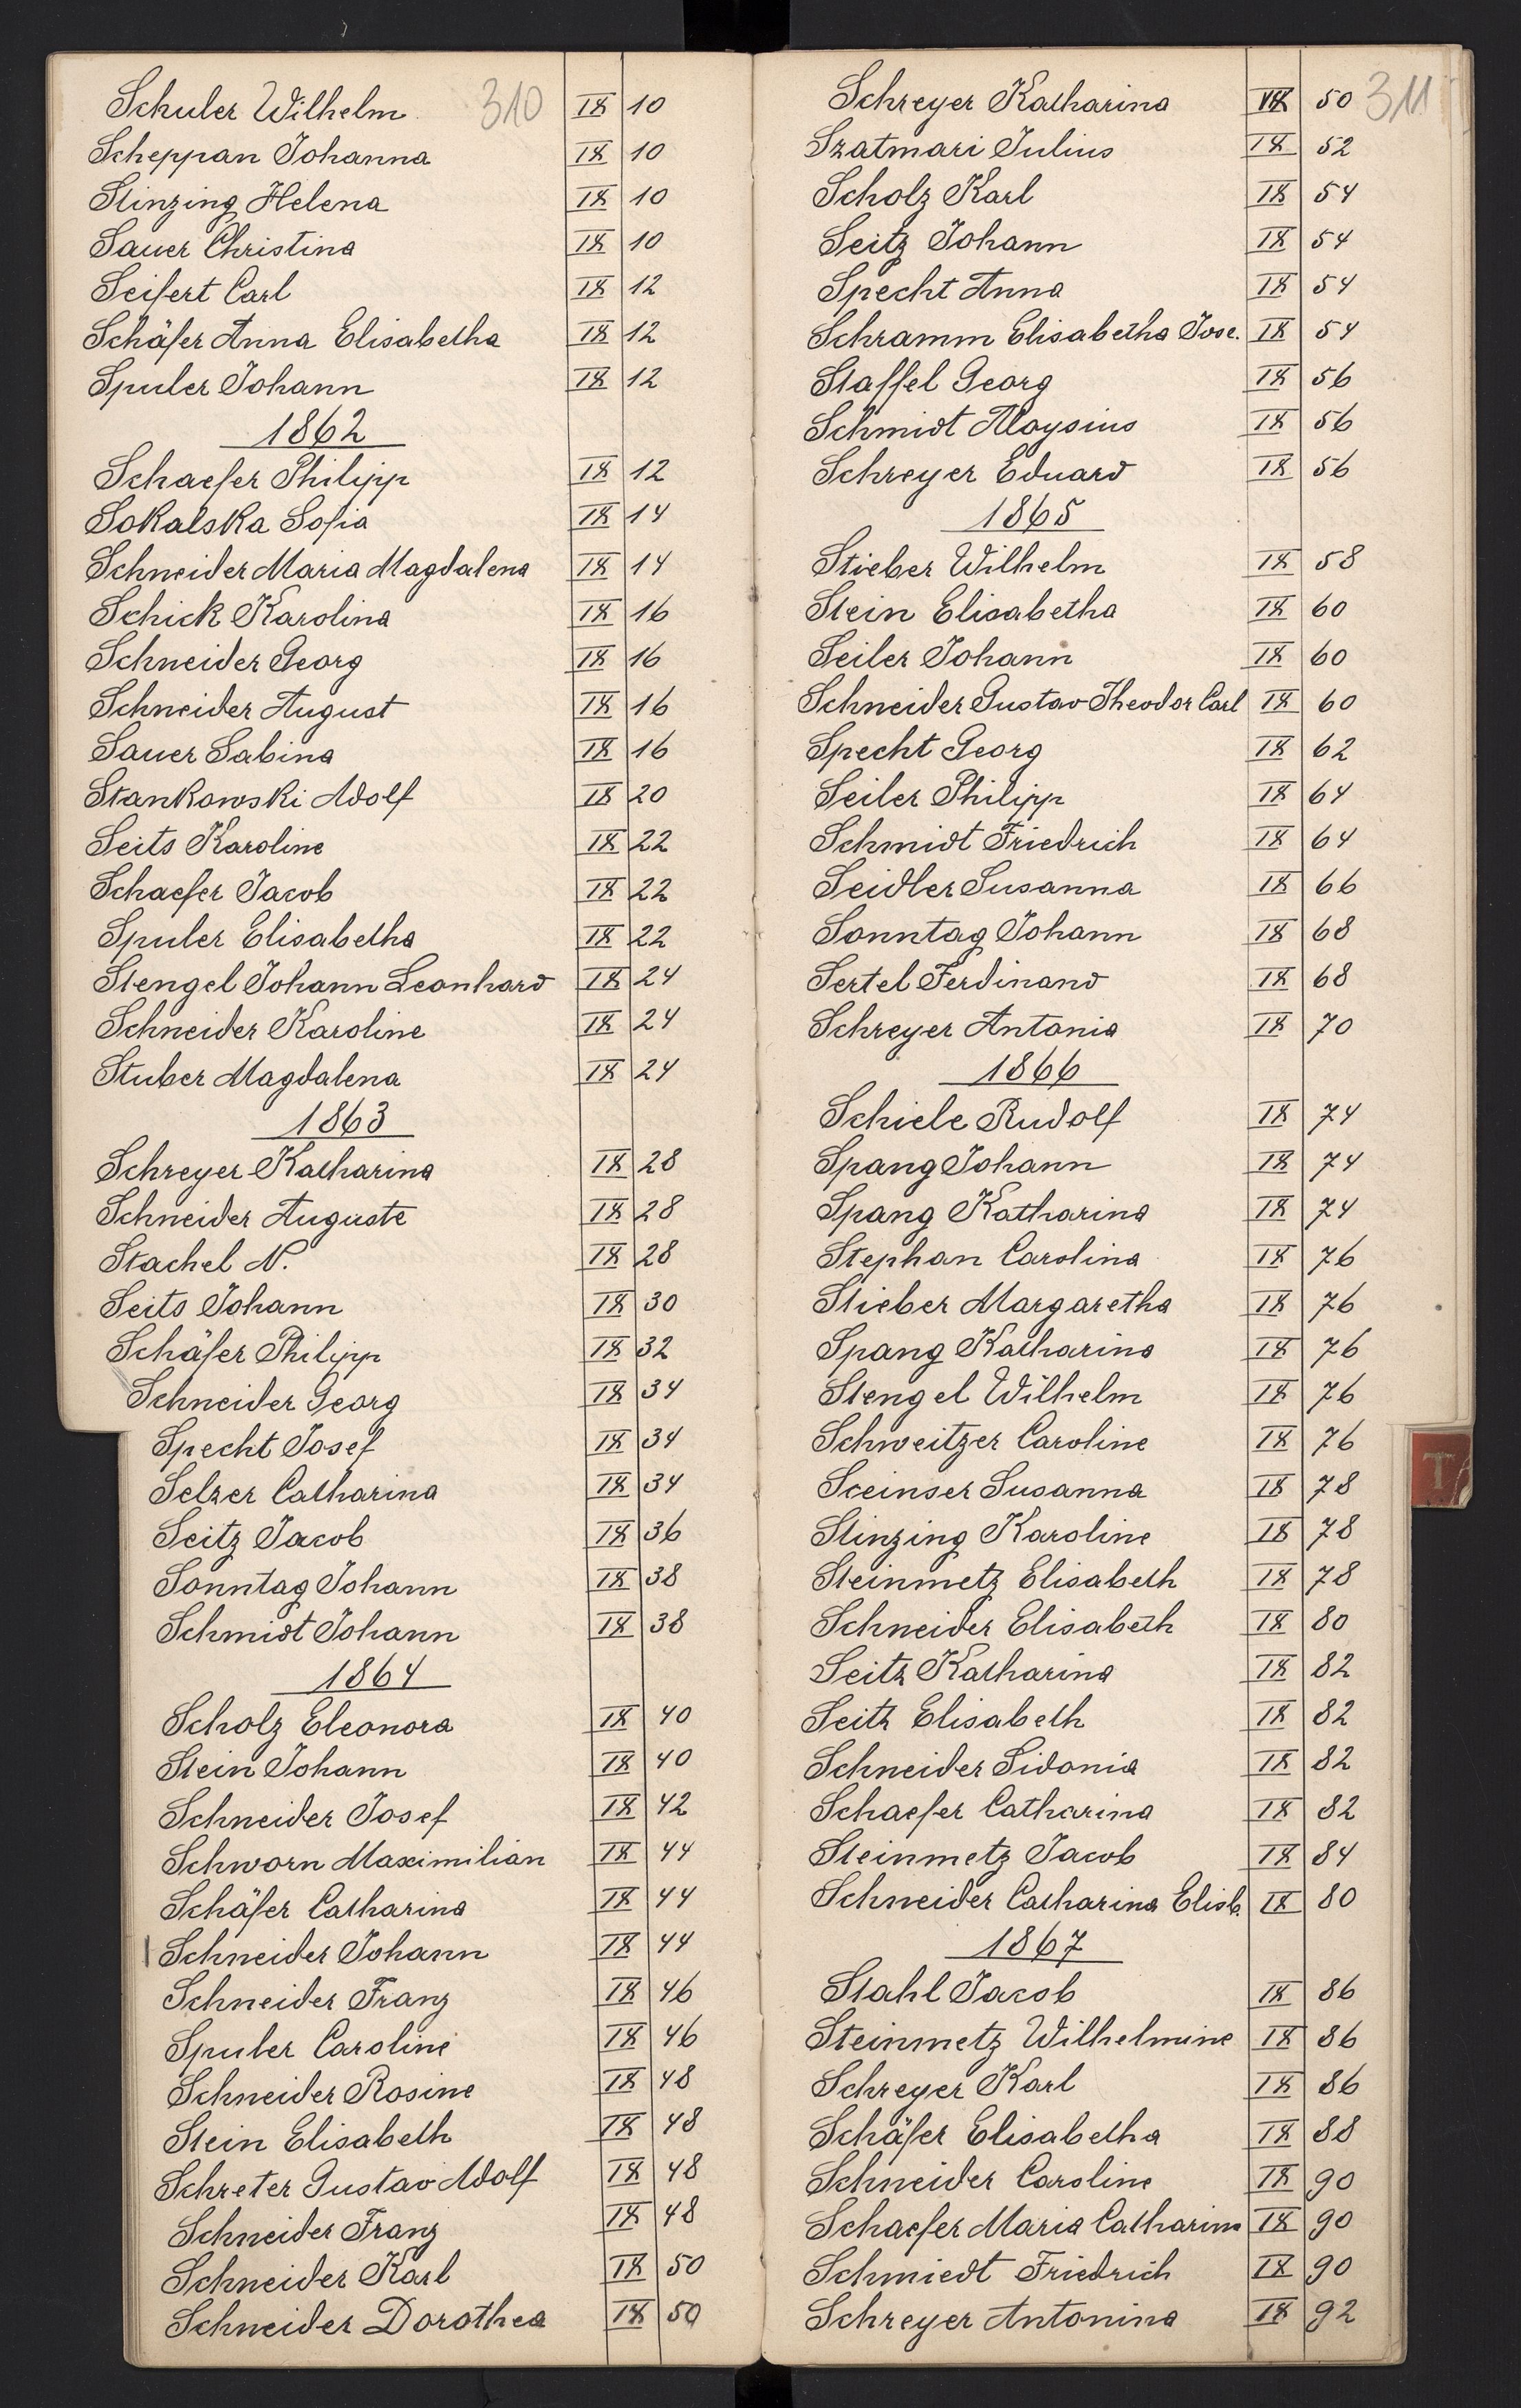 310
Schuler Wilhelm IX 10
Scheppan Johanna IX 10
Stinzing Helena IX 10
Sauer Christina IX 10
Seifert Carl IX 12
Schäfer Anna Elisabetha IX 12
Spuler Johann IX 12
1862
Schaefer Philipp IX 12
Sokalska Sofia IX 14
Schneider Maria Magdalena IX 14
Schick Karolina IX 16
Schneider Georg IX 16
Schneider August IX 16
Sauer Sabina IX 16
Stankowski Adolf IX 20
Seits Karoline IX 22
Schaefer Jacob IX 22
Spuler Elisabetha IX 22
Stengel Johann Leonhard IX 24
Schneider Karoline IX 24
Stuber Magdalena IX 24
1863
Schreyer Katharina IX 28
Schneider Auguste IX 28
Stachel N. IX 28
Seits Johann IX 30
Schäfer Philipp IX 32
Schneider Georg IX 34
Specht Josef IX 34
Selzer Catharina IX 34
Seitz Jacob IX 36
Sonntag Johann IX 38
Schmidt Johann IX 38
1864
Scholz Eleonora IX 40
Stein Johann IX 40
Schneider Josef IX 42
Schworn Maximilian IX 44
Schäfer Catharina IX 44
Schneider Johann IX 44
Schneider Franz IX 46
Spuler Caroline IX 46
Schneider Rosine IX 48
Stein Elisabeth IX 48
Schreter Gustav Adolf IX 48
Schneider Franz IX 48
Schneider Karl IX 50
Schneider Dorothea IX 50
311
Schreyer Katharina 50
Szatmari Julius IX 52
Scholz Karl IX 54
Seitz Johann IX 54
Specht Anna IX 54
Schramm Elisabetha Jose. IX 54
Staffel Georg IX 56
Schmidt Aloysius IX 56
Schreyer Eduard IX 56
1865
Stieber Wilhelm IX 58
Stein Elisabetha IX 60
Seiler Johann IX 60
Schneider Gustav Theodor Carl IX 60
Specht Georg IX 62
Seiler Philipp IX 64
Schmidt Friedrich IX 64
Seidler Susanna IX 66
Sonntag Johann IX 68
Sertel Ferdinand IX 68
Schreyer Antonia IX 70
1866
Schiele Rudolf IX 74
Spang Johann IX 74
Spang Katharina IX 74
Stephan Carolina IX 76
Stieber Margaretha IX 76
Spang Katharina IX 76
Stengel Wilhelm IX 76
Schweitzer Caroline IX 76
Sceinser Susanna IX 78
Stinzing Karoline IX 78
Steinmetz Elisabeth IX 78
Schneider Elisabeth IX 80
Seitz Katharina IX 82
Seitz Elisabeth IX 82
Schneider Sidonia IX 82
Schaefer Catharina IX 82
Steinmetz Jacob IX 84
Schneider Catharina Elisb. IX 80
1867
Stahl Jacob IX 86
Steinmetz Wilhelmine IX 86
Schreyer Karl IX 86
Schäfer Elisabetha IX 88
Schneider Caroline IX 90
Schaefer Maria Catharina IX 90
Schmiedt Friedrich IX 90
Schreyer Antonina IX 92
T